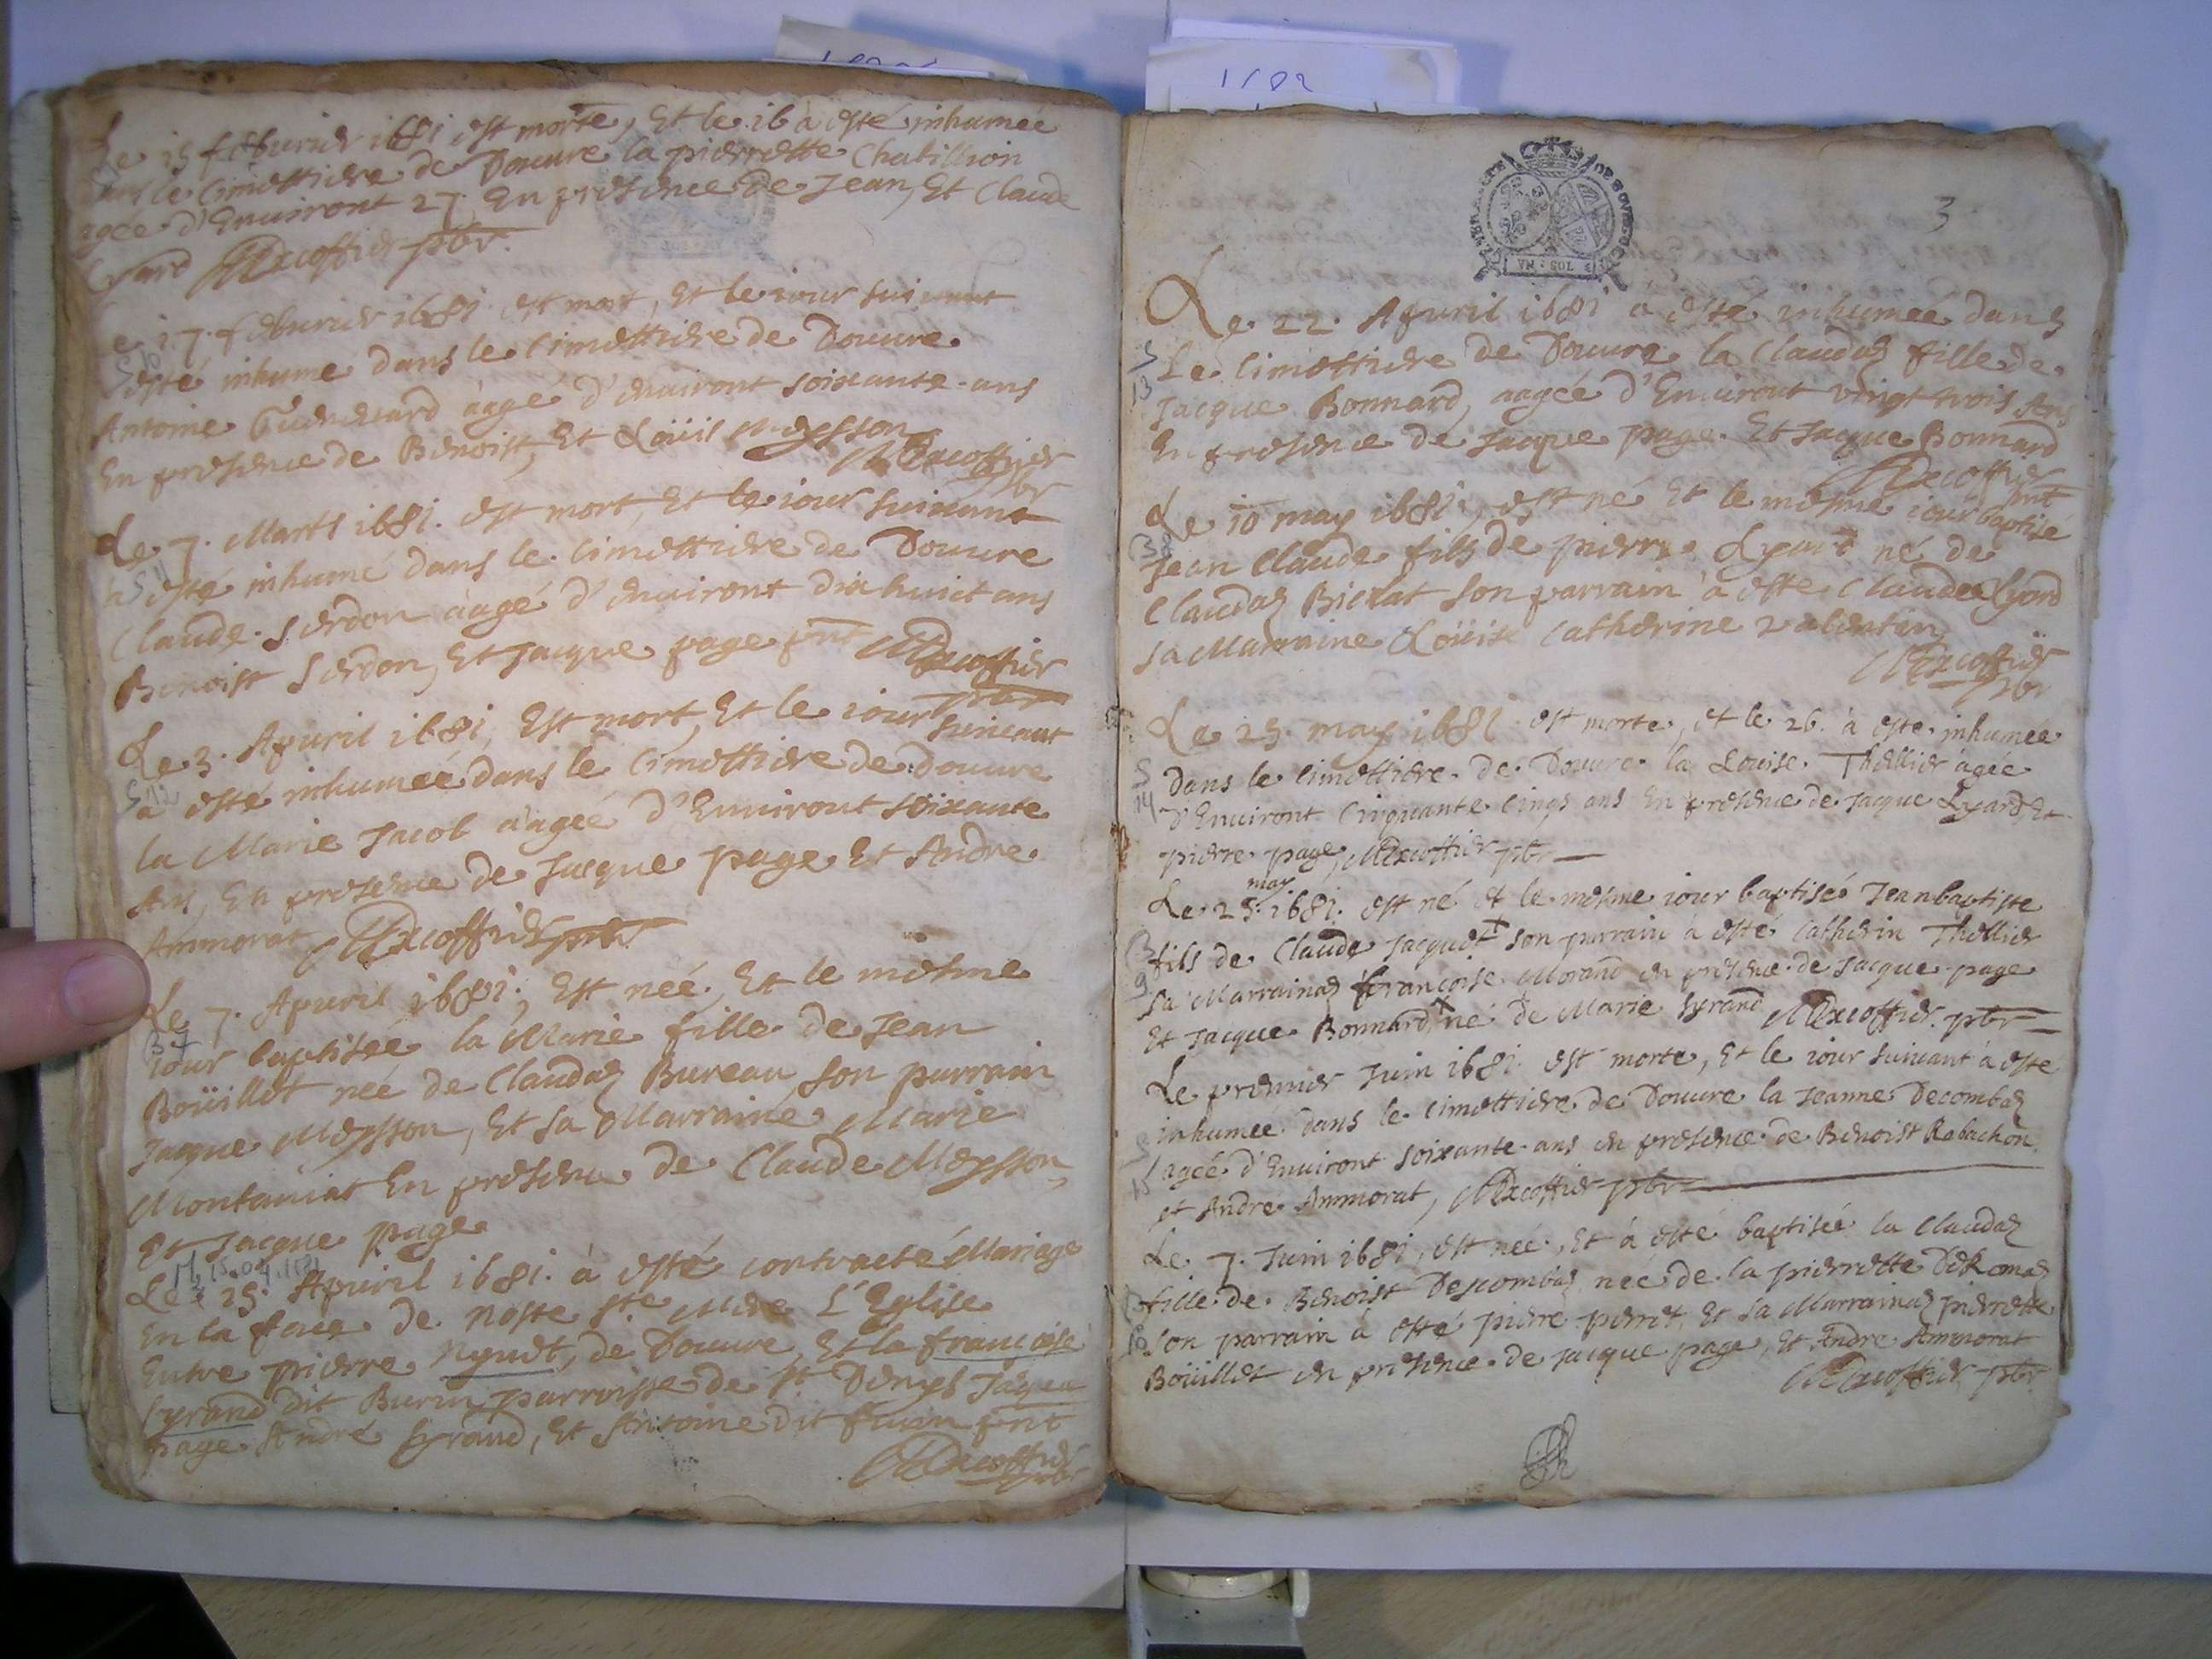 Le 15 febvrier 1681 est morte, Et le 16 à esté inhumée
dans le Cimettiere de Douvre la pierrette Chatillion
agée d'Environt 27 En presence de Jean, Et Claude
Lyard MExcoffier pbr.
Le 17. febvrier 1681 est mort, Et le iour suivant
esté inhumé dans le Cimettiere de Douvre
Antoine aagé d'environt soixante-ans
En presence de Benoist, Et Loüis Meysson
MExcoffier
pbr
Le 7. Marts 1681. est mort, Et le iour suivant
à esté inhumé dans le Cimettiere de Douvre
Claude Serdon àagé d'environt dix huict ans
Benoist Serdon, Et Jacque page pnt MExcoffier
pbr
Le 3. Apvril 1681, Est mort Et le iour suivant
à esté inhumeé dans le Cimettiere de Douvre
la Marie Jacob àageé d'Environt soixante
Ans, En presence de Jacque page Et Andre
Ammorat MExcoffier pbr
Le 7. Apvril 1681, Est néé Et le mesme
iour baptisée la Marie fille de Jean
Boüillet neé de Claudaz Bureau son parrain
Jacque Meysson, Et sa Marraine Marie
Montaniat En presence de Claude Meysson,
Et Jacque page
M 15.04.1681
Le 15. Apvril 1681. à esté contracté Mariage
En la face de nostre ste Mere L'Eglise
Entre pierre nyuet, de Douvre, Et la françoise
Syrand dit Burin parroisse de st Denys Jaque
page André Syrand, Et Antoine dit pnt
MExcoffier
pbr
1682
UN SOL
3
Le 22. Apvril 1681 à esté inhumeé dans
S Le Cimettiere de Douvre la Claudaz fille de
13 Jacque Bonnard, aagée d'Environt vingt trois Ans
En presence de Jacque page Et Jacque Bonnard
MExcoffier
pnt
Le 10 may 1681, est né Et le mesme iour baptisé
B 8 Jean Claude fils de pierre Lyard né de
Claudaz Bielat son parrain à esté Claude Lyard
sa Marraine Loüise Catherine valentin
MExcoffier
pbr
Le 25. may 1681 est morte, et le 26. à esté inhumée
S dans le Cimettiere de Douvre la Louise Thellier àgée
14 d'Environt Cinquante Cinqs ans En presence de Jacque Lyard Et
pierre page, MExcoffier pbr
may
Le 25. 1681. est né et le mesme iour baptisée Jeanbaptiste
B fils de Claude Jacquet + son parrain à esté Catherin Thellier
9 sa Marrainaz françoise Morand en presence de Jacque page
Et Jacque Bonnard, + né de Marie Syrand MExcoffier pbr
Le premier Juin 1681 est morte, Et le iour suivant à esté
S inhumee dans le Cimettiere de Douvre la Jeanne Decombaz
15 agéé d'Environt soixante ans en presence de Benoist Rabachon
et André Ammorat, MExcoffier pbr
Le 7. Juin 1681, est neé, Et à esté baptisée la Claudaz
B fille de Benoist Descombaz neé de la pierrette
10 son parrain à esté pierre perret, Et sa Marrainaz pierrette
Boüillet en presence de jacque page, Et Andre Ammorat
MExcoffier pbr